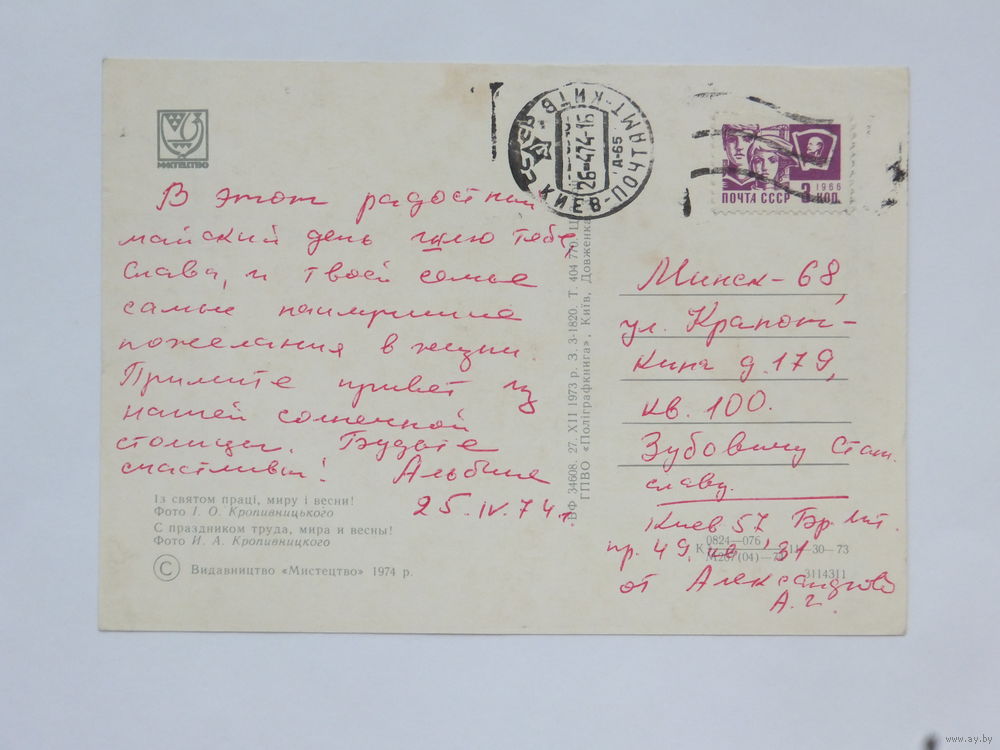 МИСТЕЦТВО
В этот радостный
майский день шлю тебе,
Слава, и твоей семье
самые наилучшие
пожелания в жизни
Примите привет из
нашей солнечной
столицы. Будьте
счастливы! Альбина
25.IV.74 г.
Із святом праці, миру і весни!
Фото І. О. Кропивницького
С праздником труда, мира и весны!
Фото И. А. Кропивницкого
© Видавництво «Мистецтво» 1974 р.
БФ 34608. 27. XII 1973 р. З. 3-1820. Т. 404 770. Ц
ГПВО «Поліграфкнига», Київ, Довженка
КИЕВ-ПОЧТАМТ-КИЇВ
СССР
26-474-16
А-65
1966
ПОЧТА СССР 3 КОП
Минск-68,
ул. Крапот-
кина д. 179,
кв. 100.
Зубовичу Стани-
славу.
Киев 57 Бр. Лит.
пр. 49 кв. 31
0824—076
М207(04)—74
К 11—30—73
3114311
от Александрово
А. Г.
www.ay.by